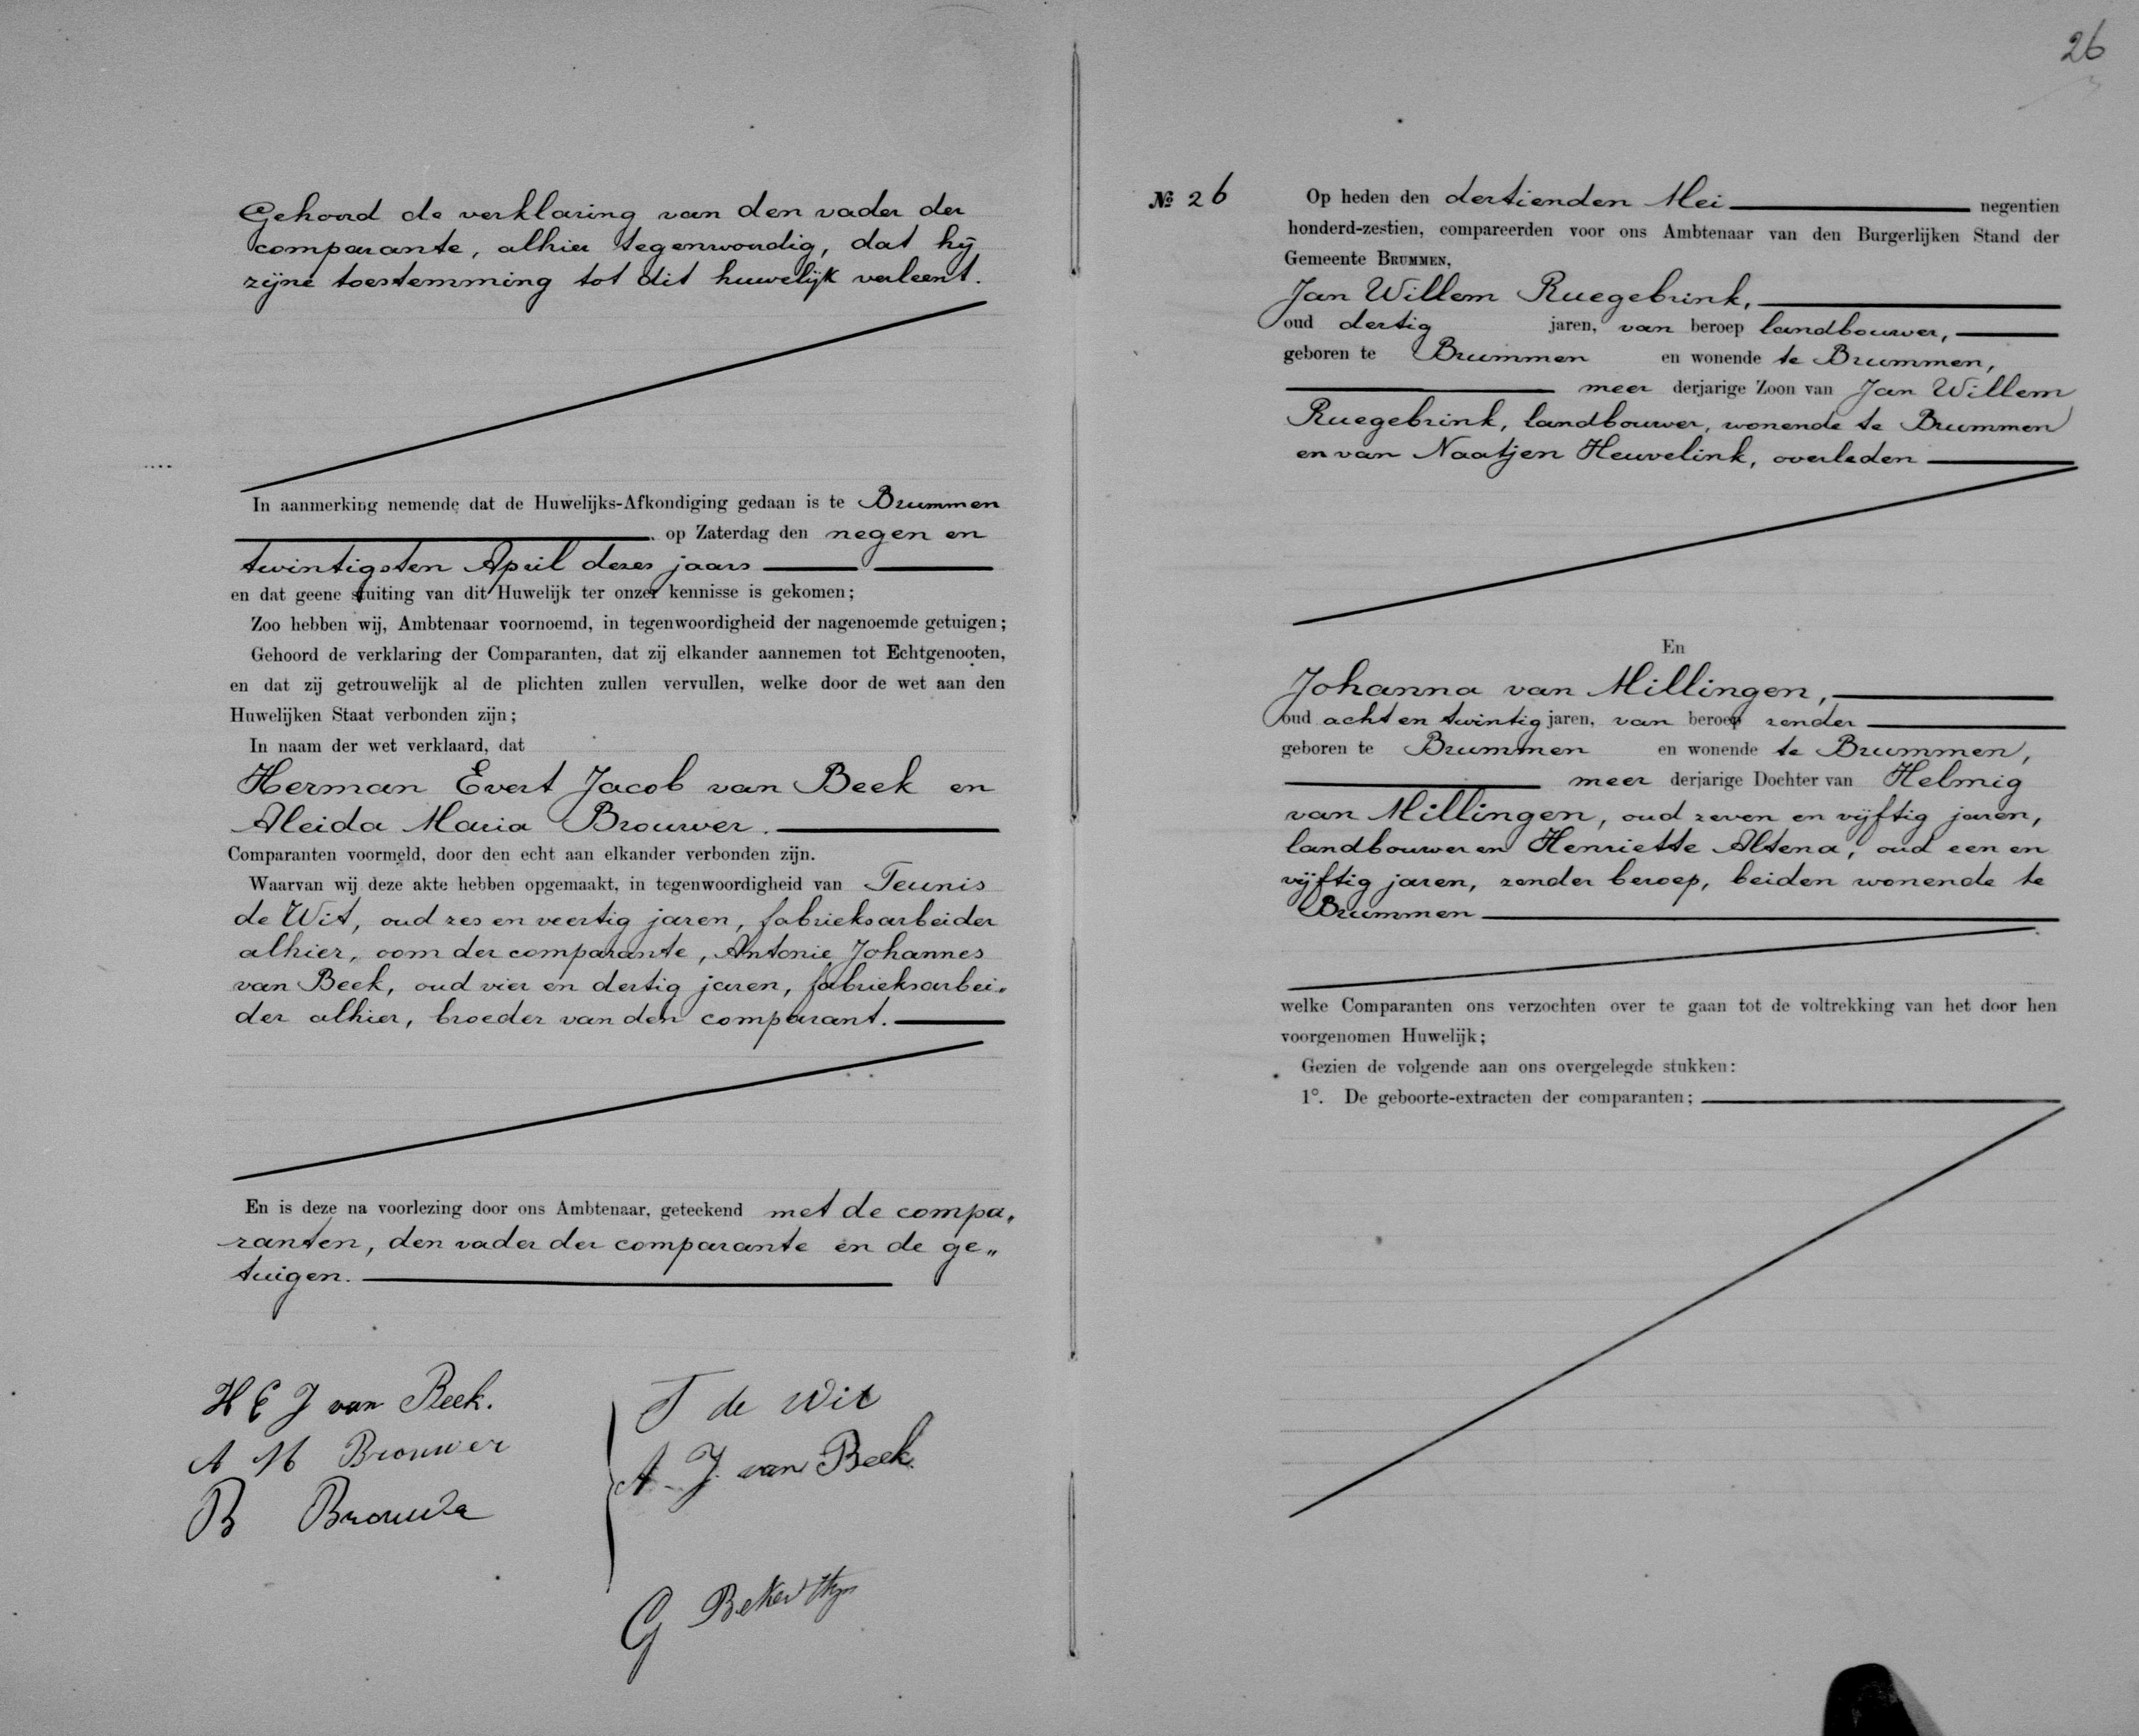 Gehoord de verklaring van den vader der
comparante, alhier tegenwoordig, dat hij
zijne toestemming tot dit huwelijk verleent.
In aanmerking nemende dat de Huwelijks-Afkondiging gedaan is te Brummen
op Zaterdag den negen en
twintigsten April dezes jaars
en dat geene stuiting van dit Huwelijk ter onzer kennisse is gekomen;
Zoo hebben wij, Ambtenaar voornoemd, in tegenwoordigheid der nagenoemde getuigen;
Gehoord de verklaring der Comparanten, dat zij elkander aannemen tot Echtgenooten,
en dat zij getrouwelijk al de plichten zullen vervullen, welke door de wet aan den
Huwelijken Staat verbonden zijn;
In naam der wet verklaard, dat
Herman Evert Jacob van Beek en
Aleida Maria Brouwer.
Comparanten voormeld, door den echt aan elkander verbonden zijn.
Waarvan wij deze akte hebben opgemaakt, in tegenwoordigheid van Teunis
de Wit, oud zes en veertig jaren, fabrieksarbeider
alhier, oom der comparante, Antonie Johannes
van Beek, oud vier en dertig jaren, fabrieksarbei„
der alhier, broeder van den comparant.
En is deze na voorlezing door ons Ambtenaar, geteekend met de compa„
ranten, den vader der comparante en de ge„
tuigen.
H E J van Beek.
A M Brouwer
B Brouwer
T de Wit
A. J. van Beek.
G
26
№ 26
Op heden den dertienden Mei negentien
honderd-zestien, compareerden voor ons Ambtenaar van den Burgerlijken Stand der
Gemeente BRUMMEN,
Jan Willem Ruegebrink,
oud dertig jaren, van beroep landbouwer,
geboren te Brummen en wonende te Brummen,
meer derjarige Zoon van Jan Willem
Ruegebrink, landbouwer, wonende te Brummen
en van Naatjen Heuvelink, overleden
En
Johanna van Millingen,
oud acht en twintig jaren, van beroep zonder
geboren te Brummen en wonende te Brummen,
meer derjarige Dochter van Helmig
van Millingen, oud zeven en vijftig jaren,
landbouwer en Henriette Altena, oud een en
vijftig jaren, zonder beroep, beiden wonende te
Brummen
welke Comparanten ons verzochten over te gaan tot de voltrekking van het door hen
voorgenomen Huwelijk;
Gezien de volgende aan ons overgelegde stukken:
1°. De geboorte-extracten der comparanten;